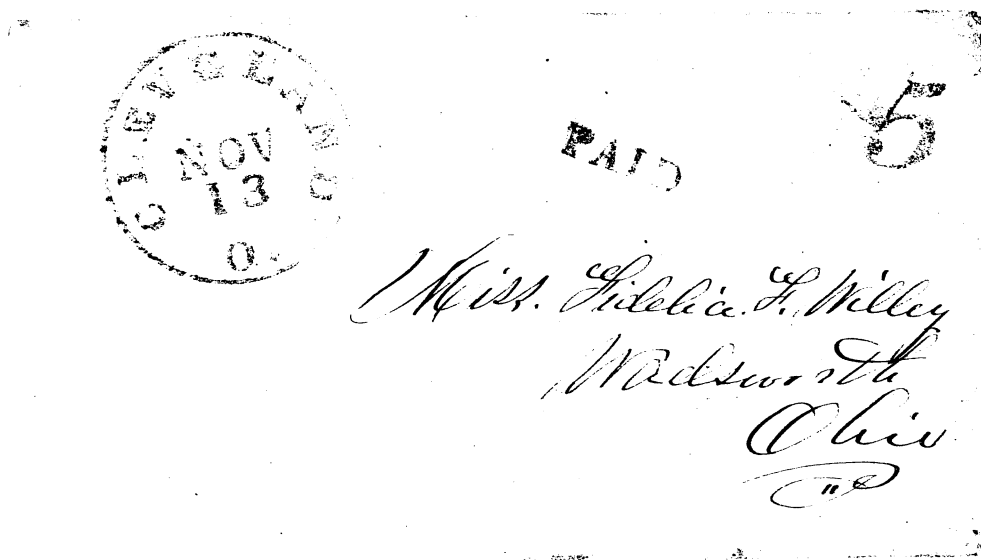 CLEVELAND
NOV
13
O.
PAID
5
Miss. Fidelia. F. Willey
Wadsworth
Ohio